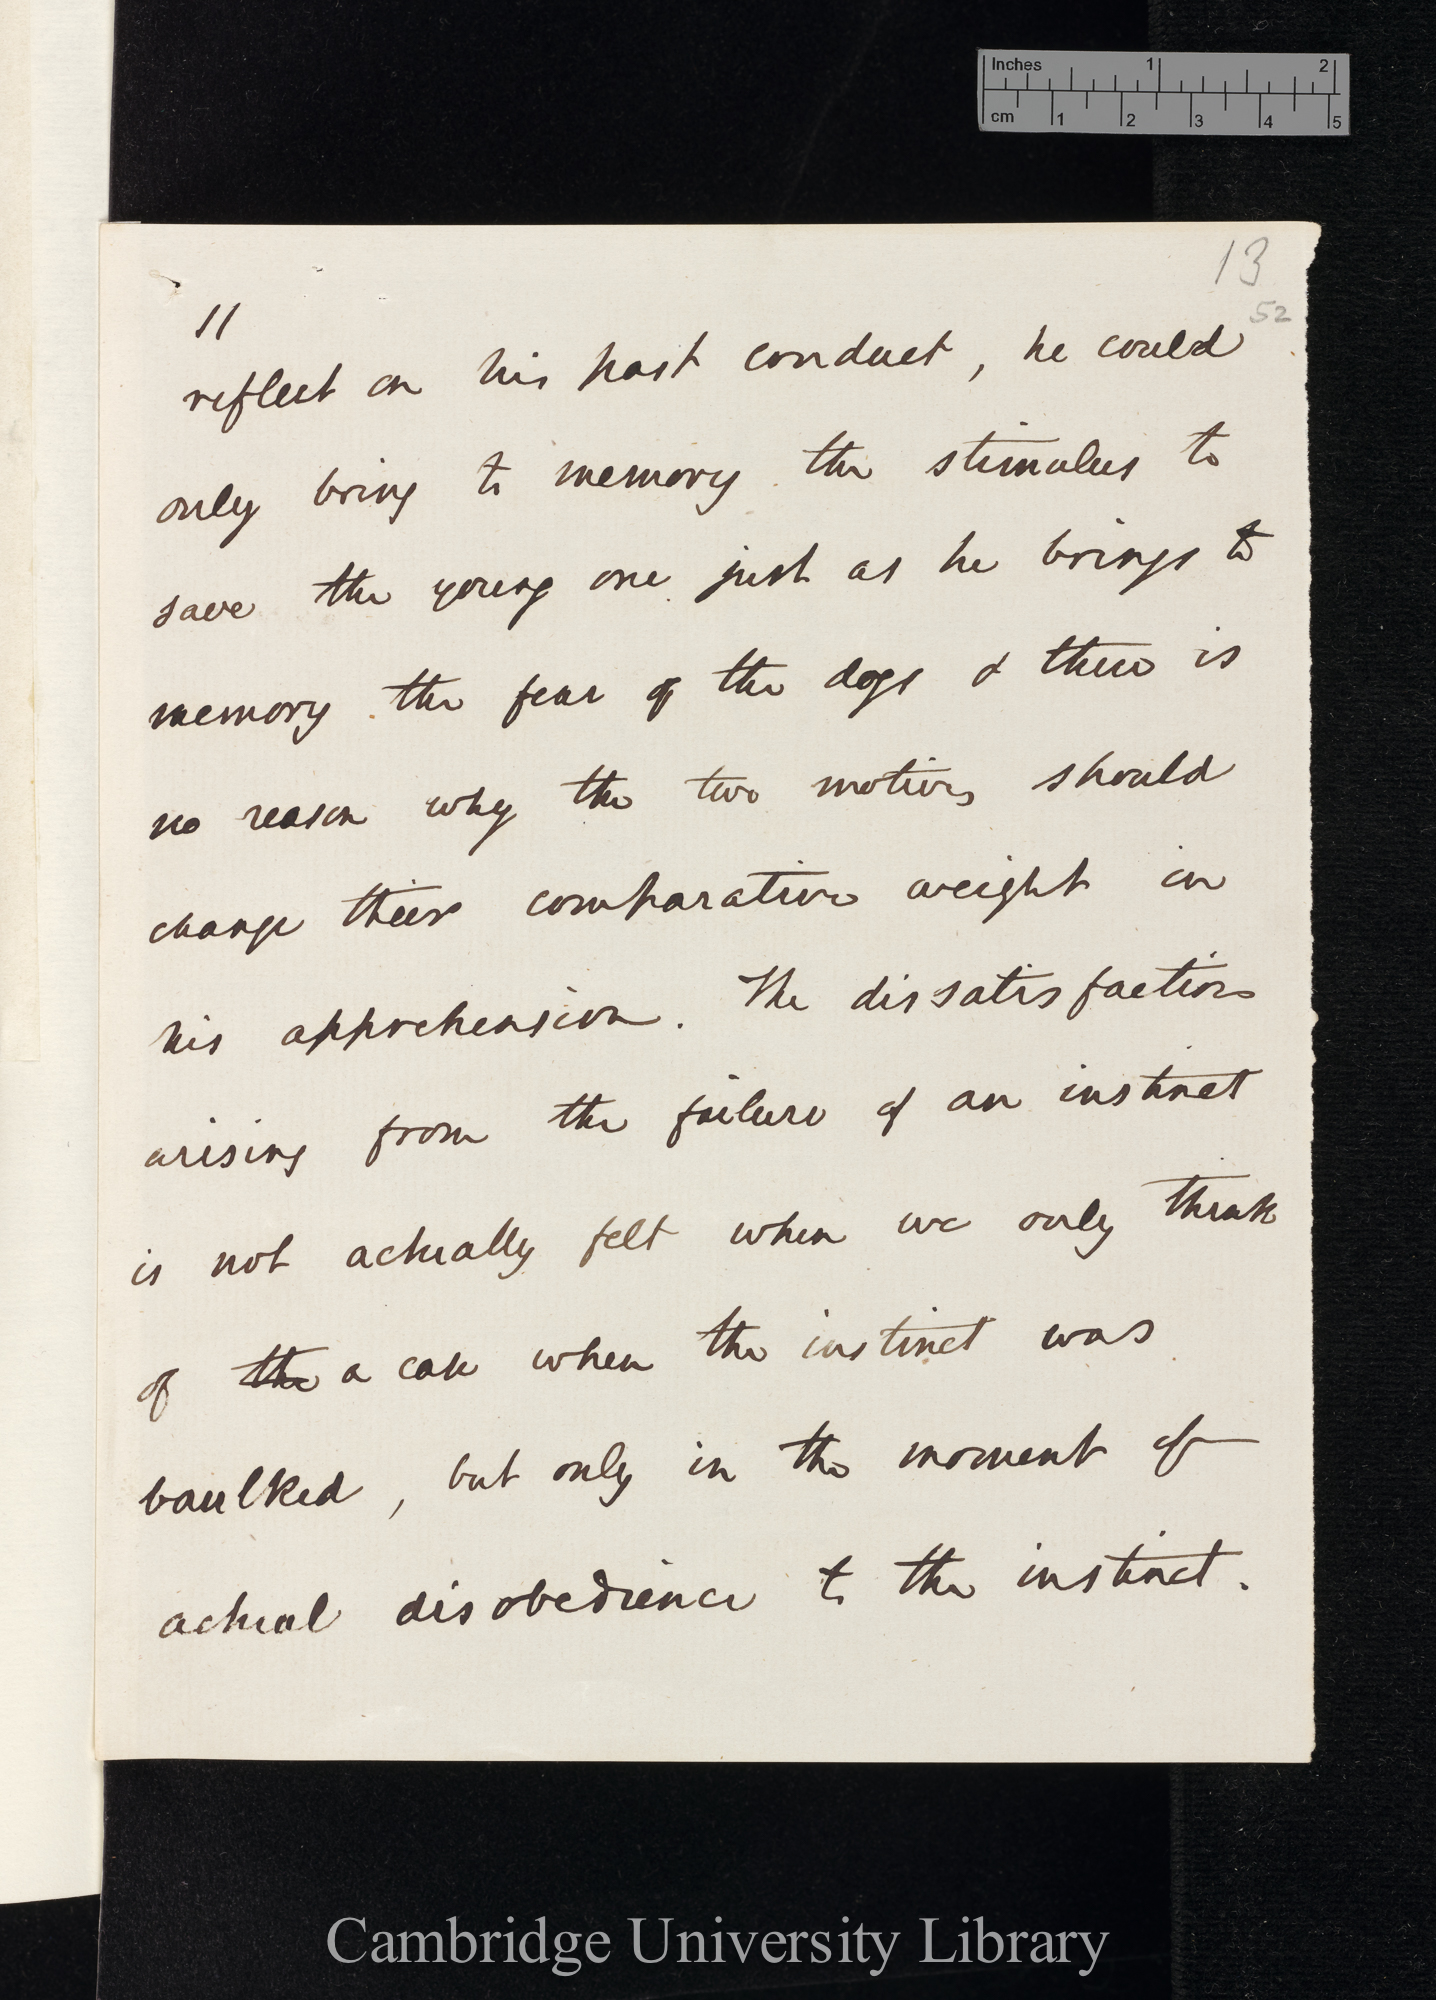 Inches 1 2
cm 1 2 3 4 5
13
52
11
reflect on his past conduct, he could
only bring to memory the stimulus to
save the young one just as he brings to
memory the fear of the dogs & there is
no reason why the two motives should
change their comparative weight in
his apprehension. The dissatisfaction
arising from the failure of an instinct
is not actually felt when we only think
of the a case when the instinct was
baulked, but only in the moment of
actual disobedience to the instinct.
Cambridge University Library